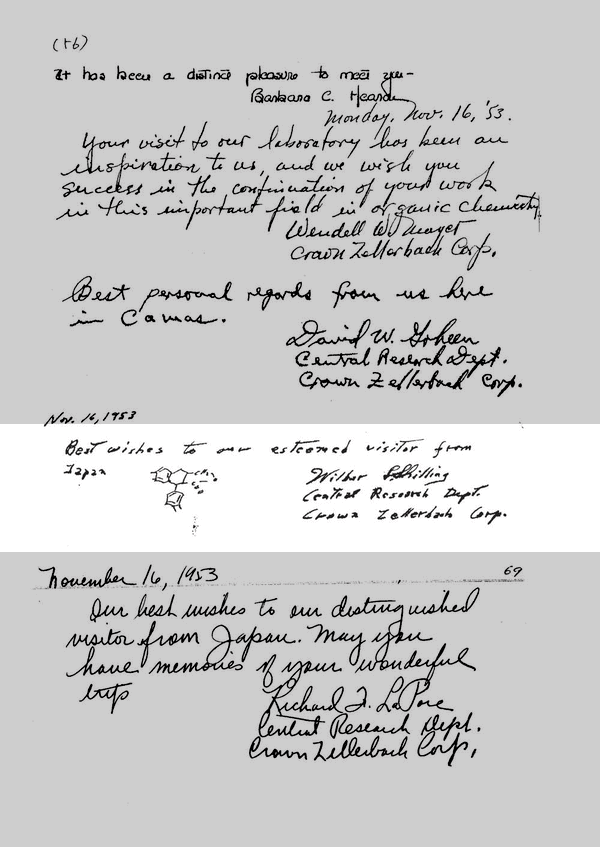 (+6)
It has been a distinct pleasure to meet you-
Barbara C.
Monday, Nov. 16, '53.
Your visit to our laboratory has been an
inspiration to us, and we wish you
success in the continuation of your work
in this important field in organic chemistry.
Wendell W.
Crown Zellerbach Corp.
Best personal regards from us here
in Camas.
David W. Goheen
Central Research Dept.
Crown Zellerbach Corp.
Nov. 16, 1953
Best wishes to our esteemed visitor from
Japan
Wilbur
Central Research Dept.
Crown Zellerbach Corp.
November 16, 1953
69
Our best wishes to our distinguished
visitor from Japan. May you
have memories of your wonderful
trip
Richard F. LaPore
Central Research Dept.
Crown Zellerbach Corp,